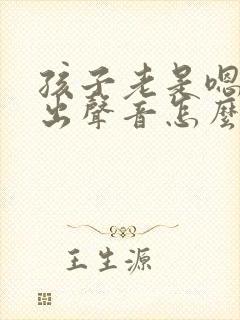 孩子老是嗯
出聲音怎麼
王生源